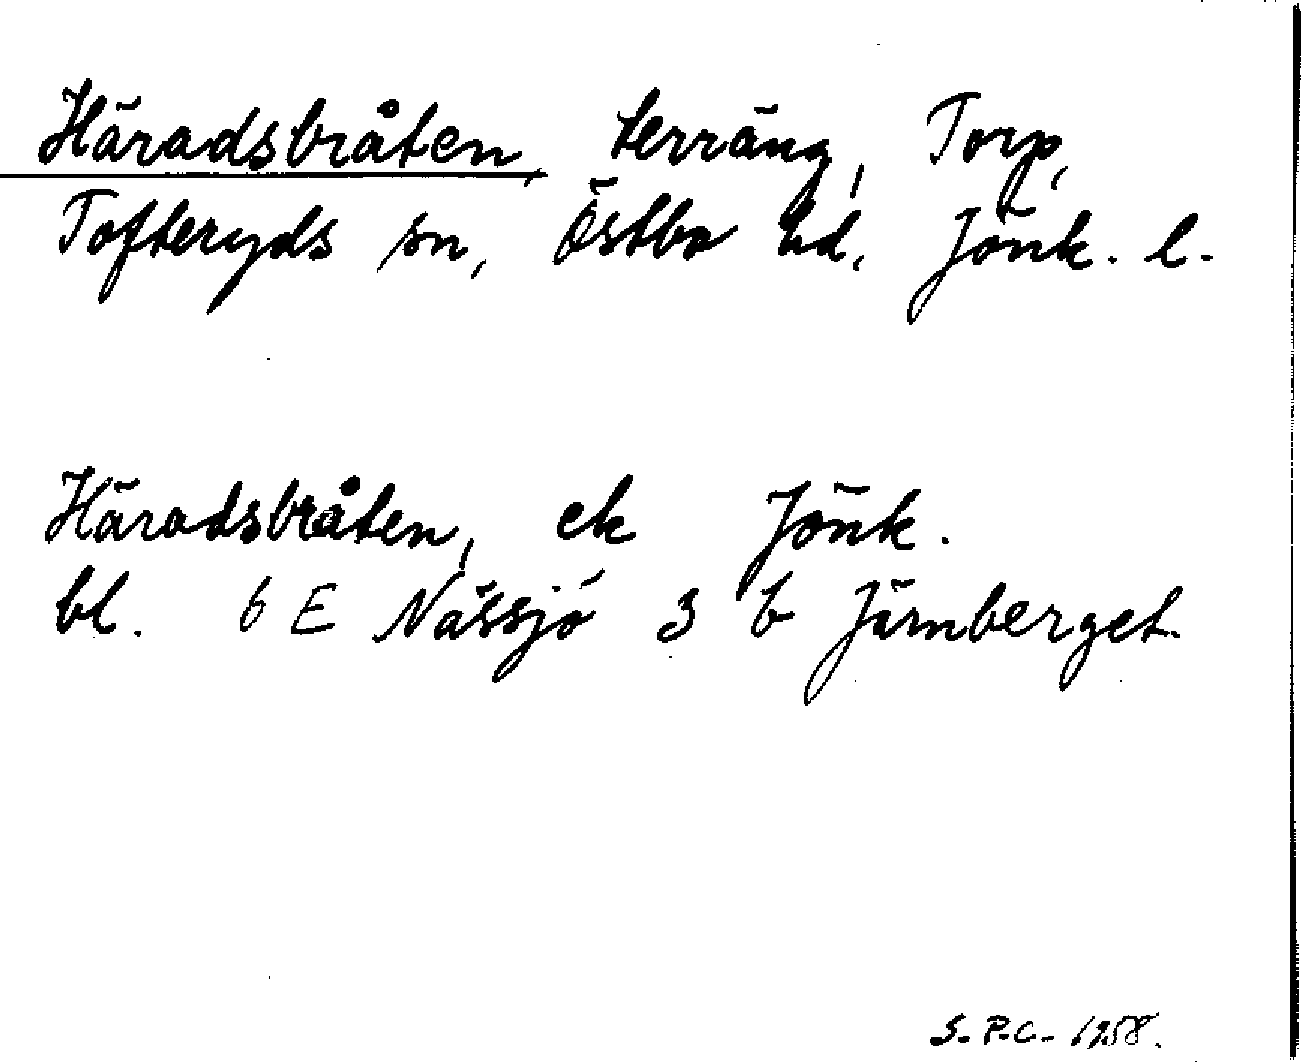 Häradsbråten, terräng, Torp,
Tofteryds sn, Östbo hd, Jönk. l.
Häradsbråten, ek Jönk.
bl. 6 E Nässjö 3 b Järnberget.
S.P.C. 1958.